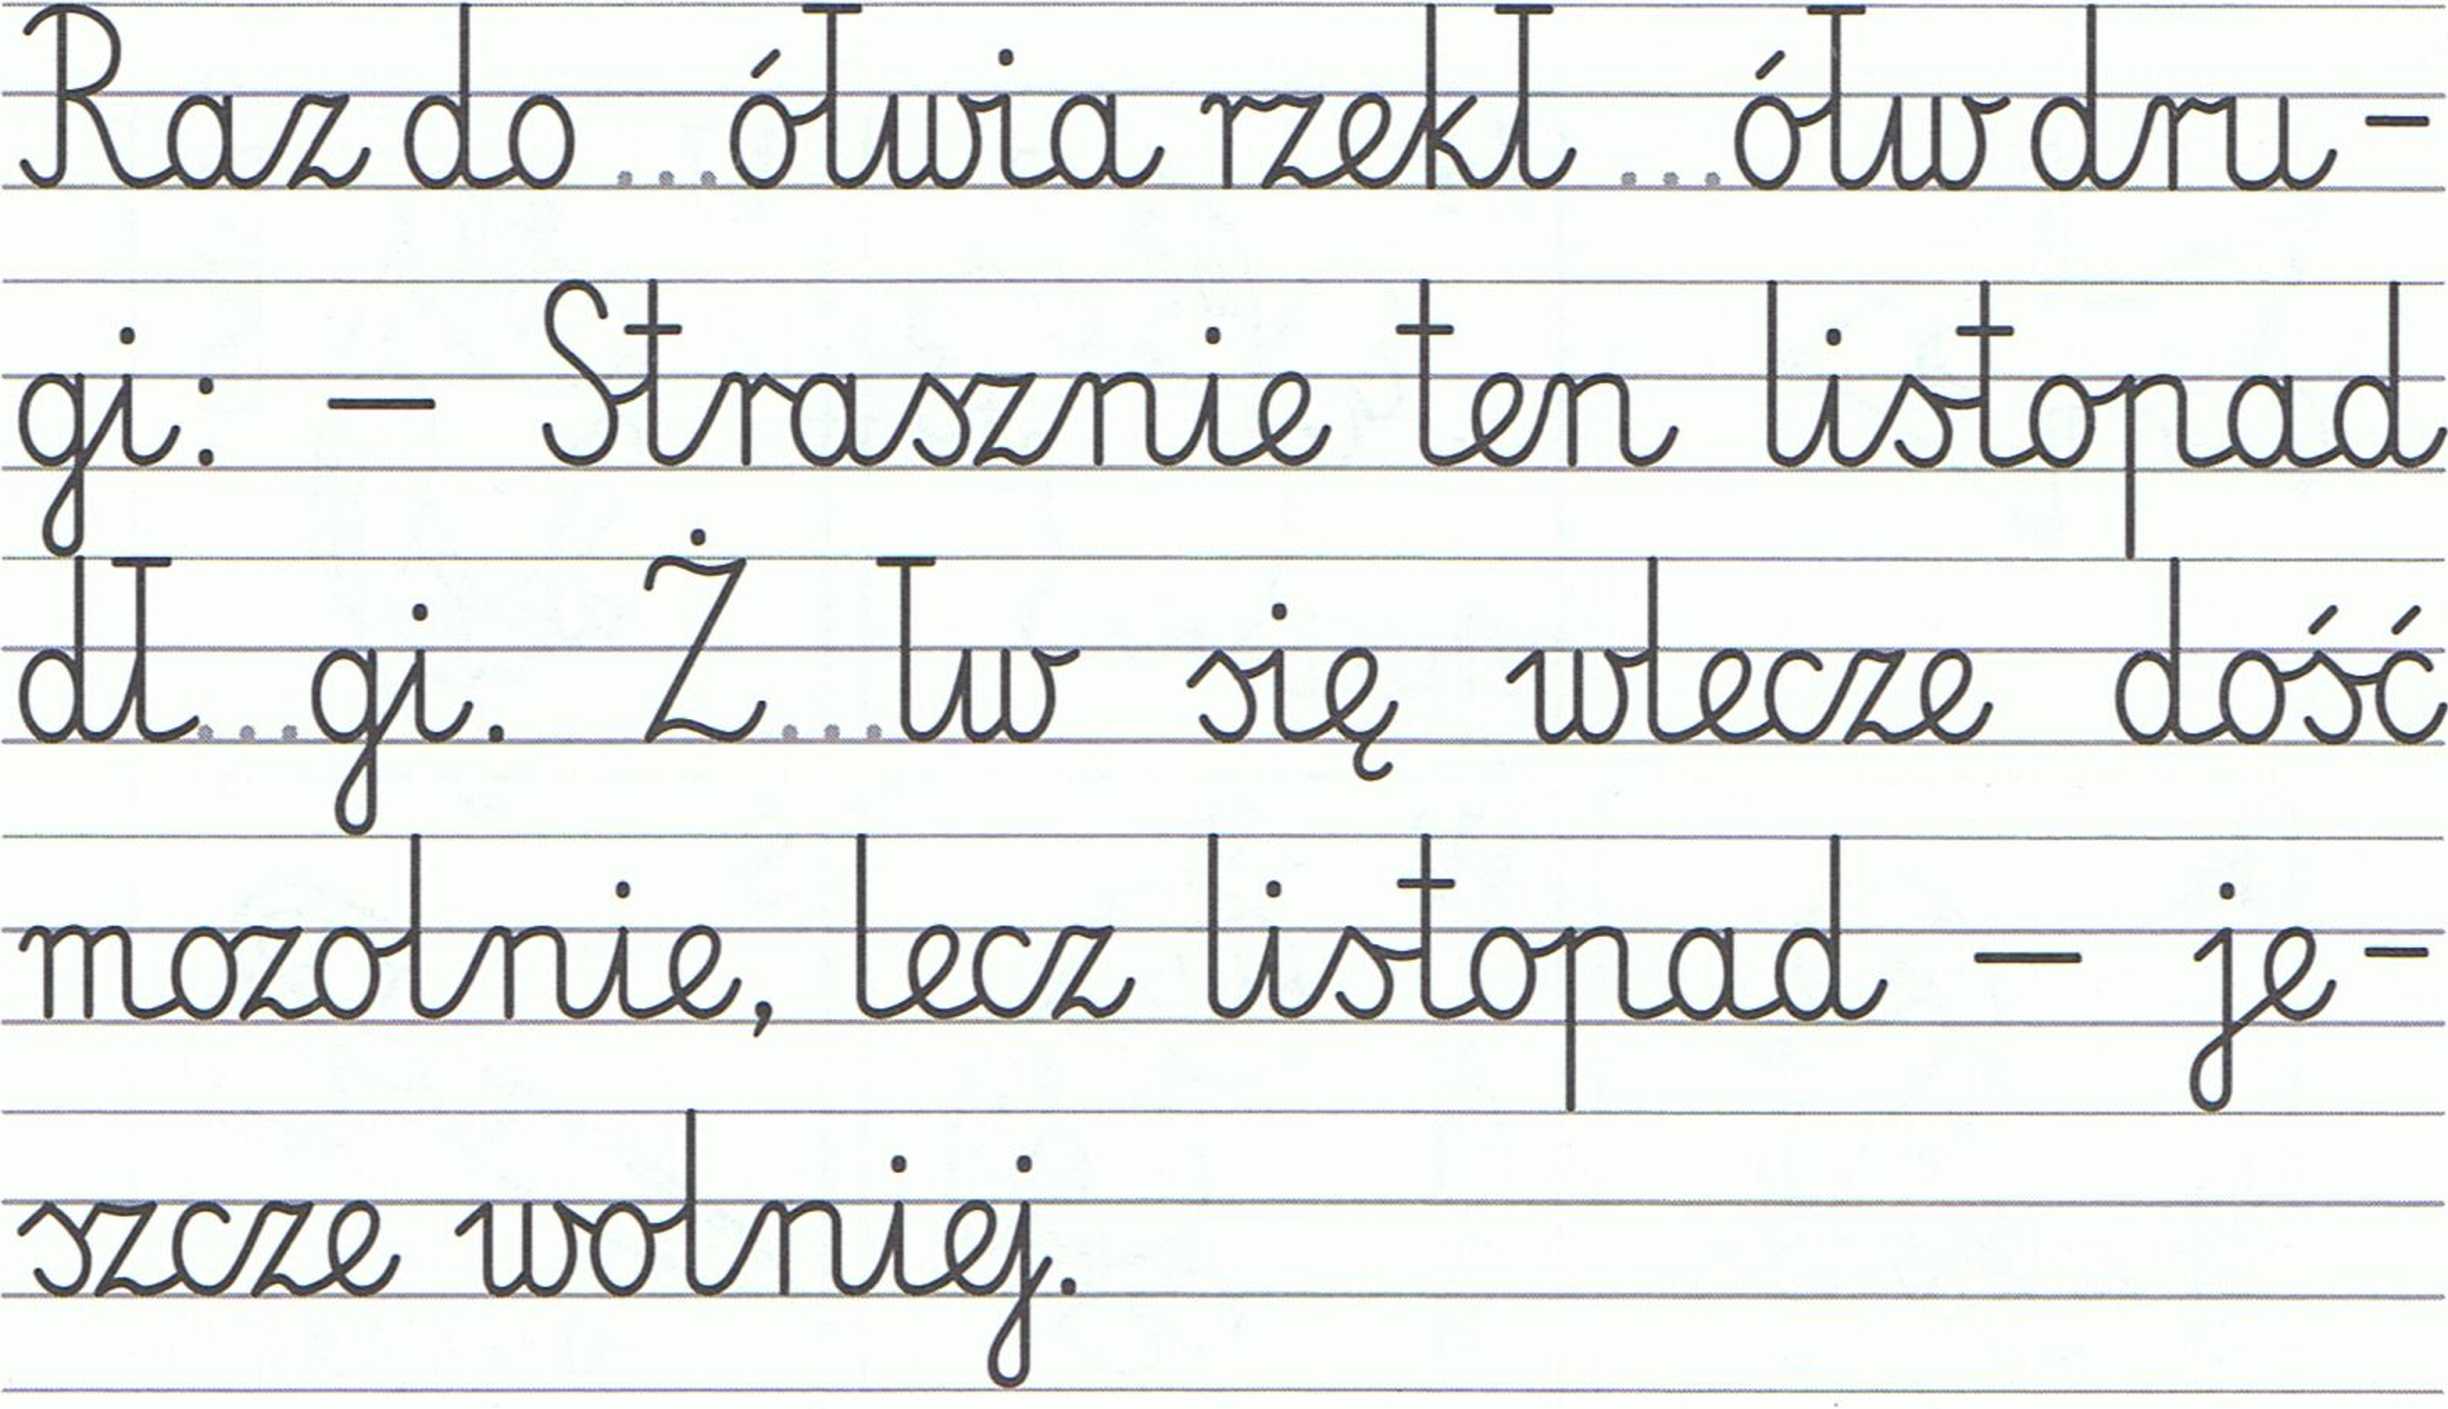 Raz do ...ółwia rzekł ...ółw dru-
gi: – Strasznie ten listopad
dł...gi. Ż...łw się wlecze dość
mozolnie, lecz listopad – je-
szcze wolniej.